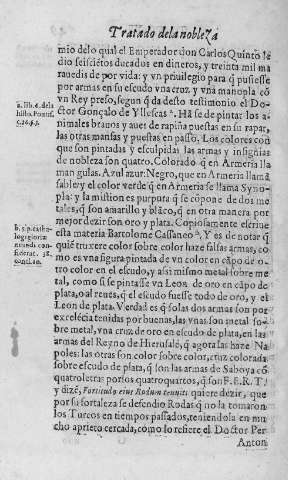 Tratado dela nobleza
mio delo qual el Emperador don Carlos Quinto le
dio seisciẽtos ducados en dineros, y treinta mil ma
rauedis de por vida: y vn priuilegio para q̃ pusiesse
por armas en su escudo vna cruz, y vna manopla cõ
vn Rey preso, segun q̃ da desto testimonio el Do-
ctor Gonçalo de Yllescas ª. Hã se de pintar los a-
nimales brauos y aues de rapiña puestas en su rapar,
las otras mansas y puestas en passo. Los colores con
que son pintadas y esculpidas las armas y insignias
de nobleza son quatro. Colorado q̃ en Armeria lla
man gulas. Azul azur: Negro, que en Armeria llamã
sable y el color verde q̃ en Armeria se llama Syno-
pla: y la mistion es purpura q̃ se cõpone de dos me
tales, q̃ son amarillo y blãco, q̃ en otra manera por
mejor dezir son oro y plata. Copiosamente escriue
esta materia Bartolome Cassaneo ᵇ, Y es de notar q̃
quiẽ truxere color sobre color haze falsas armas, co
mo es vna figura pintada de vn color en cãpo de o-
tro color en el escudo, y assi mismo metal sobre me
tal, como si se pintasse vn Leon de oro en cãpo de
plata, o al reues, q̃ el escudo fuesse todo de oro, y el
Leon de plata. Verdad es q̃ solas dos armas son por
excelẽcia tenidas por buenas, las vnas son metal so
bre metal, vna cruz de oro en escudo de plata, en las
armas del Reyno de Hierusalẽ, q̃ agora las haze Na
poles: las otras son color sobre color, cruz colorada
sobre escudo de plata, q̃ son las armas de Saboya cõ
quatro letras por los quatro quartos, q̃ son F. E. R. T.
y dizẽ, Fortitudo eius Rodum tenuit: quiere dezir, que
por su fortaleza se defendio Rodas q̃ no la tomaron
los Turcos en tiempos passados, teniendola en mu
cho aprieto cercada, cómo lo refiere el Doctor Per
Anton
a. lib. 6. dela
histo. Pontif.
b. 1. p. catha-
log. gloriæ
mundi con-
siderat. 38.
conclu.